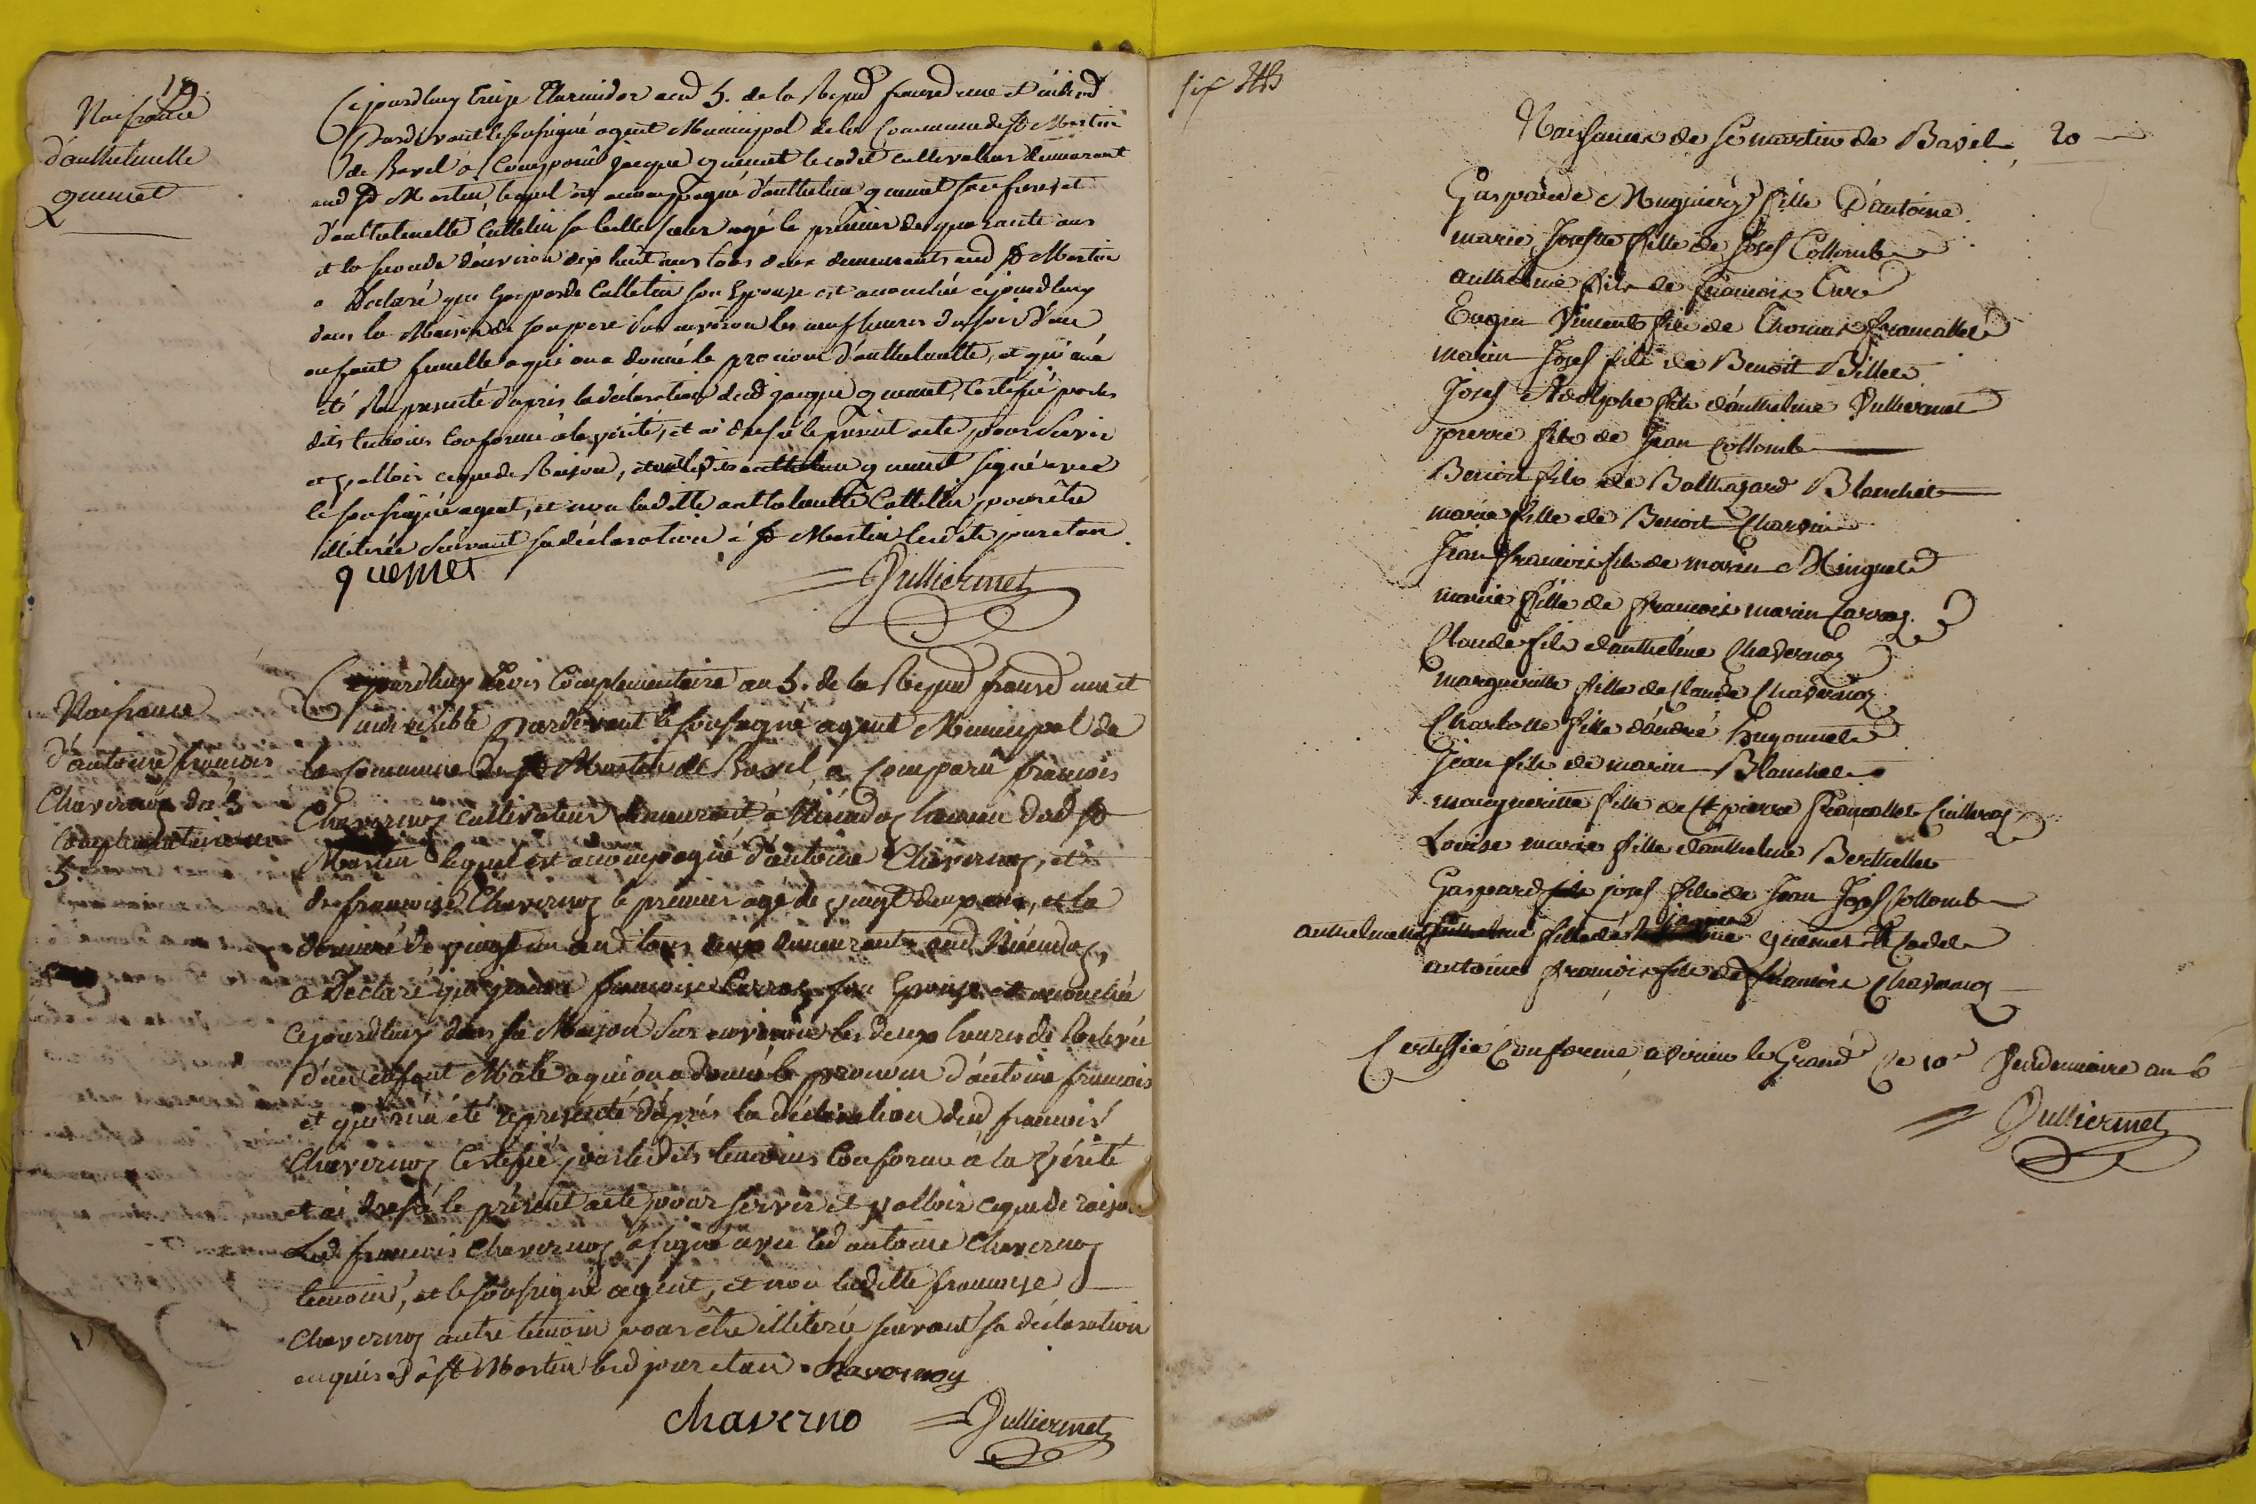 19.
Naissance
d'anthelmette
quemet
Cejourdhuy treize thermidor an 5. de la Repud francd une et indivd
Pardevant le soussigné agent Municipal de la Commune de St Martin
de Bavel a Comparû jacque quemet le cadet cultivateur demeurant
aud St Martin lequel est accompagné d'anthelme quemet son frere, et
d'anthelmette Cattelin sa belle sœur agé le premier de quarante ans
et la seconde d'environ dix huit ans tous deux demeurants aud St Martin
a Déclaré que Gasparde Cattelin son Epouse est accouchée cejourdhuy
dans la Maison de son pere sur environ les neuf heures du soir d'un
enfant femelle a qui on a donné le prenom d'anthelmette, et qui m'a
été Représenté d'après la déclaration dud jacque quemet, Certifié par les
dits temoins Conforme à la vérité, et ai dressé le présent acte pour servir
et valloir ceque de Raison, quemet signé avec
le soussigné agent, et non laditte anthelmette Cattelin pour être
illiterée suivant sa déclaration à St Martin led jour et an.
quemet
Julliermet
Naissance
d'antoine françois
Chavernoz du 3
Complementaire an
5.
Cejourdhuy trois Complementaire an 5. de la Repud francd une et
indivisible Pardevant le soussigné agent Municipal de
la Commune de St Martin de Bavel, a Comparû françois
Chavernoz cultivateur demeurant à hameau dud St
Martin lequel est accompagné d'antoine Chavernoz, et
de françoise Chavernoz le premier agé de vingt deux ans, et la
derniere de vingt un an tous deux demeurants aud
a Déclaré que françoise Carroz son Epouse est accouchée
cejourdhuy dans sa Maison sur environ les deux heures de Relevée
d'un enfant Mâle a qui on a donné le prenom d'antoine françois
et qui m'a été représenté d'après la déclaration dud françois
Chavernoz Certifié par les dits temoins Conforme à la vérité
et ai dressé le présent acte pour servir et valloir ceque de raison
Led françois Chavernoz a signé avec led antoine Chavernoz
temoin, et le soussigné agent, et non laditte françoise
Chavernoz autre temoin pour être illiterée suivant sa déclaration
enquise à St Martin led jour et an. Chavernoz
chaverno
Julliermet
Naissances de St martin de Bavel 20
Gasparde Muguiery fille D'antoine
marie Josette fille de Josef Collomb
anthelme fils de françois Curé
Eugen Vincent fils de Thomas francillet
marin Josef fils de Benoit Billet
Josef Adolphe fils d'anthelme Jullierment
pierre fils de Jean Collomb
Benoit fils de Balthazard Blanchet
marie fille de Benoit Charvin
Jean francois fils de marin Minguet
marie fille de francois marin Carroz
Claude fils d'anthelme Chavernoz
Marguerite fille de Claude Chavernoz
Charlotte fille d'andré hugonnet
Jean fils de marin Blanchet
marguerite fille de pierre francillet
Louise marie fille d'anthelme Berthellet
Gaspard josef fils de Jean Josef Collomb
anthelmette fille de Jacque quemet le Cadet
antoine francois fils de francois Chavernoz
Certiffié Conforme, a virieu le Grand Ce 10e Vendemiaire an 6
Jullierment